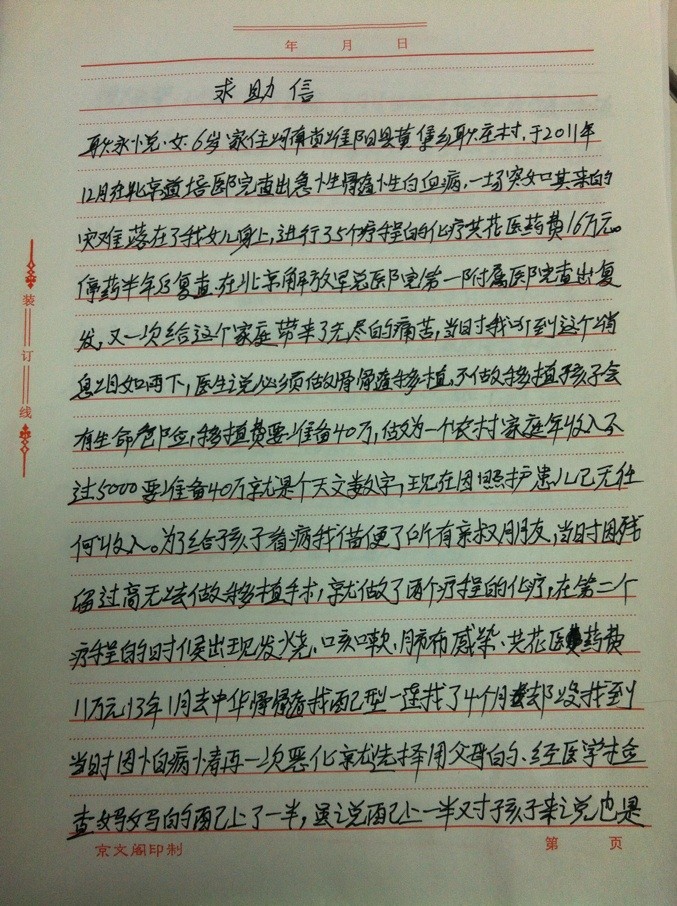 年 月 日
求助信
耿永悦、女、6岁家住河南省睢阳县黄堡乡耿庄村,于2011年
12月在北京道培医院查出急性骨髓性白血病,一场突如其来的
灾难落在了我女儿身上,进行了5个疗程的化疗共花医药费16万元。
停药半年后复查、在北京解放军总医院第一附属医院查出复
发,又一次给这个家庭带来了无尽的痛苦,当时我听到这个消
息泪如雨下,医生说必须做骨骨髓移植,不做移植孩子会
有生命危险,移植费要准备40万,做为一个农村家庭年收入不
过5000要准备40万就是个天文数字,现在因照护患儿已无任
何收入。为了给孩子看病我借便了所有亲叔朋友,当时因残
留过高无法做移植手术,就做了两个疗程的化疗,在第二个
疗程的时候出现发烧、咳嗽、肺布感染、共花医药费
11万元,13年1月去中华骨骨髓找配型一连找了4个月都没找到
当时因怕病情再一次恶化就选择用父母的、经医学检
查妈妈的配上了一半,虽说配上一半对于孩子来说也是
装订线
京文阁印制
第 页